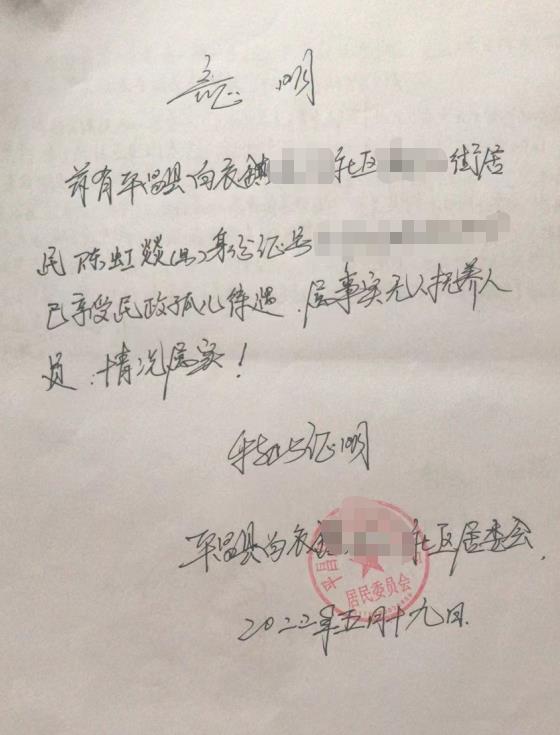 证明
兹有平昌县白衣镇 社区 街居
民陈虹燚(男)身份证号
已享受民政孤儿待遇，属事实无人抚养人
员，情况属实！
特此证明
平昌县白衣镇 社区居委会
居民委员会
2022年五月十九日